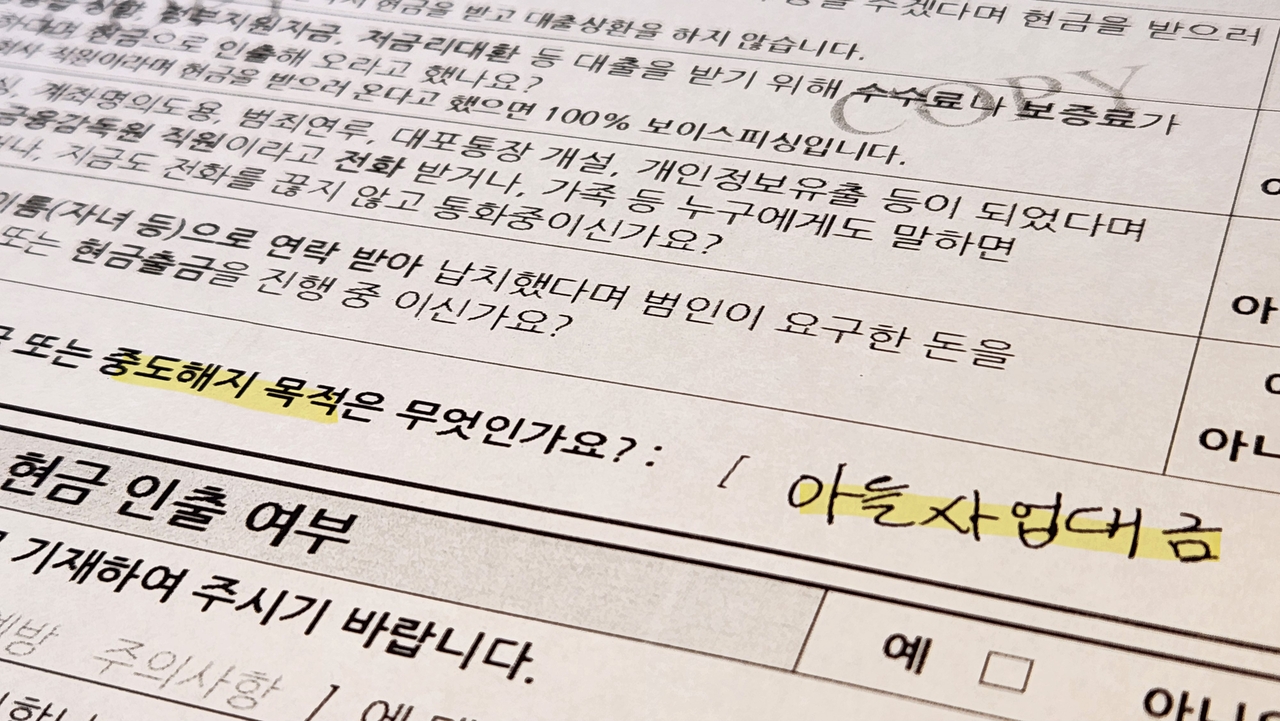 주겠다며 현금을 받으러
현금을 받고 대출상환을 하지 않습니다.
정부지원자금, 저금리대환 등 대출을 받기 위해 수수료나 보증료가
현금으로 인출해 오라고 했나요?
직원이라며 현금을 받으러 온다고 했으면 100% 보이스피싱입니다.
COPY
계좌명의도용, 범죄연루, 대포통장 개설, 개인정보유출 등이 되었다며
금융감독원 직원이라고 전화 받거나, 가족 등 누구에게도 말하면
지금도 전화를 끊지 않고 통화중이신가요?
이름(자녀 등)으로 연락 받아 납치했다며 범인이 요구한 돈을
또는 현금출금을 진행 중 이신가요?
또는 중도해지 목적은 무엇인가요? : [ 아들사업대금
현금 인출 여부
기재하여 주시기 바랍니다.
예 □
예방 주의사항 ]